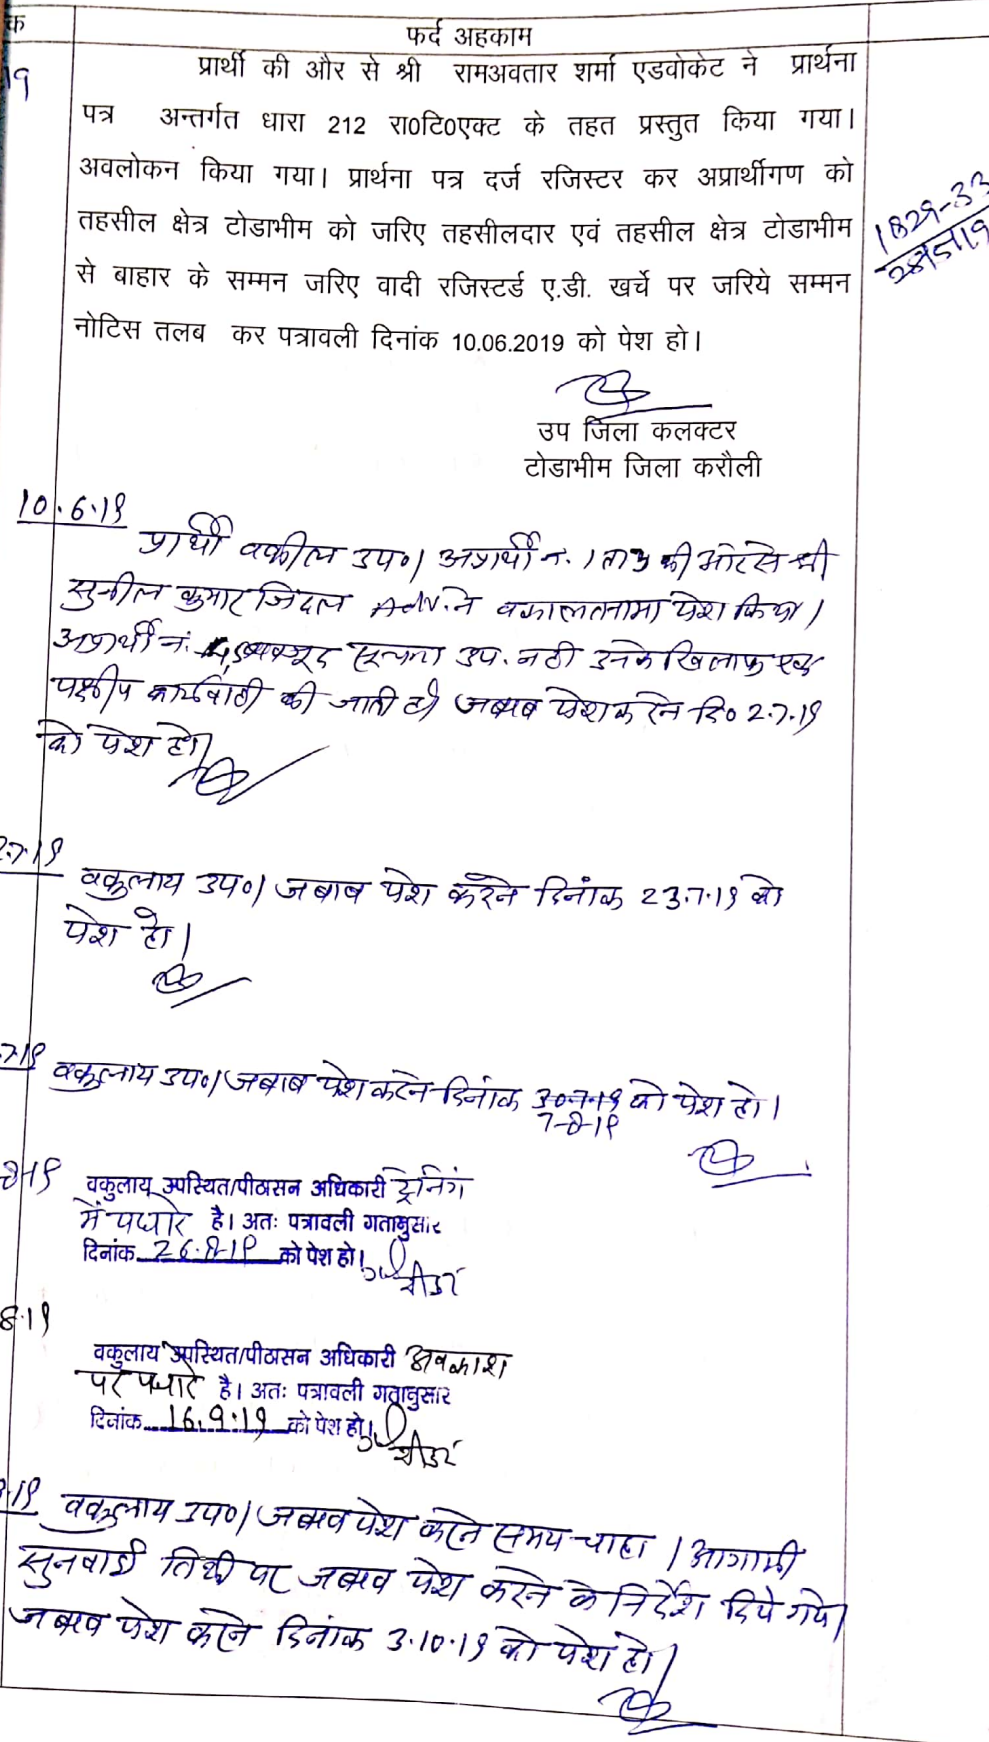 क
फर्द अहकाम
19
प्रार्थी की और से श्री रामअवतार शर्मा एडवोकेट ने प्रार्थना
पत्र अन्तर्गत धारा 212 रा0टि0एक्ट के तहत प्रस्तुत किया गया।
अवलोकन किया गया। प्रार्थना पत्र दर्ज रजिस्टर कर अप्रार्थीगण को
तहसील क्षेत्र टोडाभीम को जरिए तहसीलदार एवं तहसील क्षेत्र टोडाभीम
से बाहार के सम्मन जरिए वादी रजिस्टर्ड ए.डी. खर्चे पर जरिये सम्मन
नोटिस तलब कर पत्रावली दिनांक 10.06.2019 को पेश हो।
1829-33
उप जिला कलक्टर
टोडाभीम जिला करौली
10.6.19
प्रार्थी वकील उप०। अप्रार्थी न. 1 ता 3 की ओर से श्री
सुनील कुमार जिंदल Adv. ने वकालतनामा पेश किया।
अप्रार्थी नं. सूचना उप. नही उनके खिलाफ एक
पक्षीय कार्यवाही की जाती है। जबाब पेश करने दि० 2.7.19
को पेश हो।
2.7.19
वकुलाय उप०। जबाब पेश करने दिनांक 23.7.19 को
पेश हो।
7.19 वकुलाय उप०। जबाब पेश करने दिनांक 30.7.19 को पेश हो।
7-8-19
8-19 वकुलाय उपस्थित/पीठासन अधिकारी ट्रेनिंग
में पधारे है। अतः पत्रावली गतानुसार
दिनांक 26.8.19 को पेश हो।
रीडर
8.19
वकुलाय उपस्थित/पीठासन अधिकारी अवकाश
पर पधारे है। अतः पत्रावली गतानुसार
दिनांक 16.9.19 को पेश हो।
रीडर
9.19 वकुलाय उप०। जबाब पेश करने समय चाहा। आगामी
सुनवाई तिथी पर जबाब पेश करने के निर्देश दिये गये।
जबाब पेश करने दिनांक 3.10.19 को पेश हो।